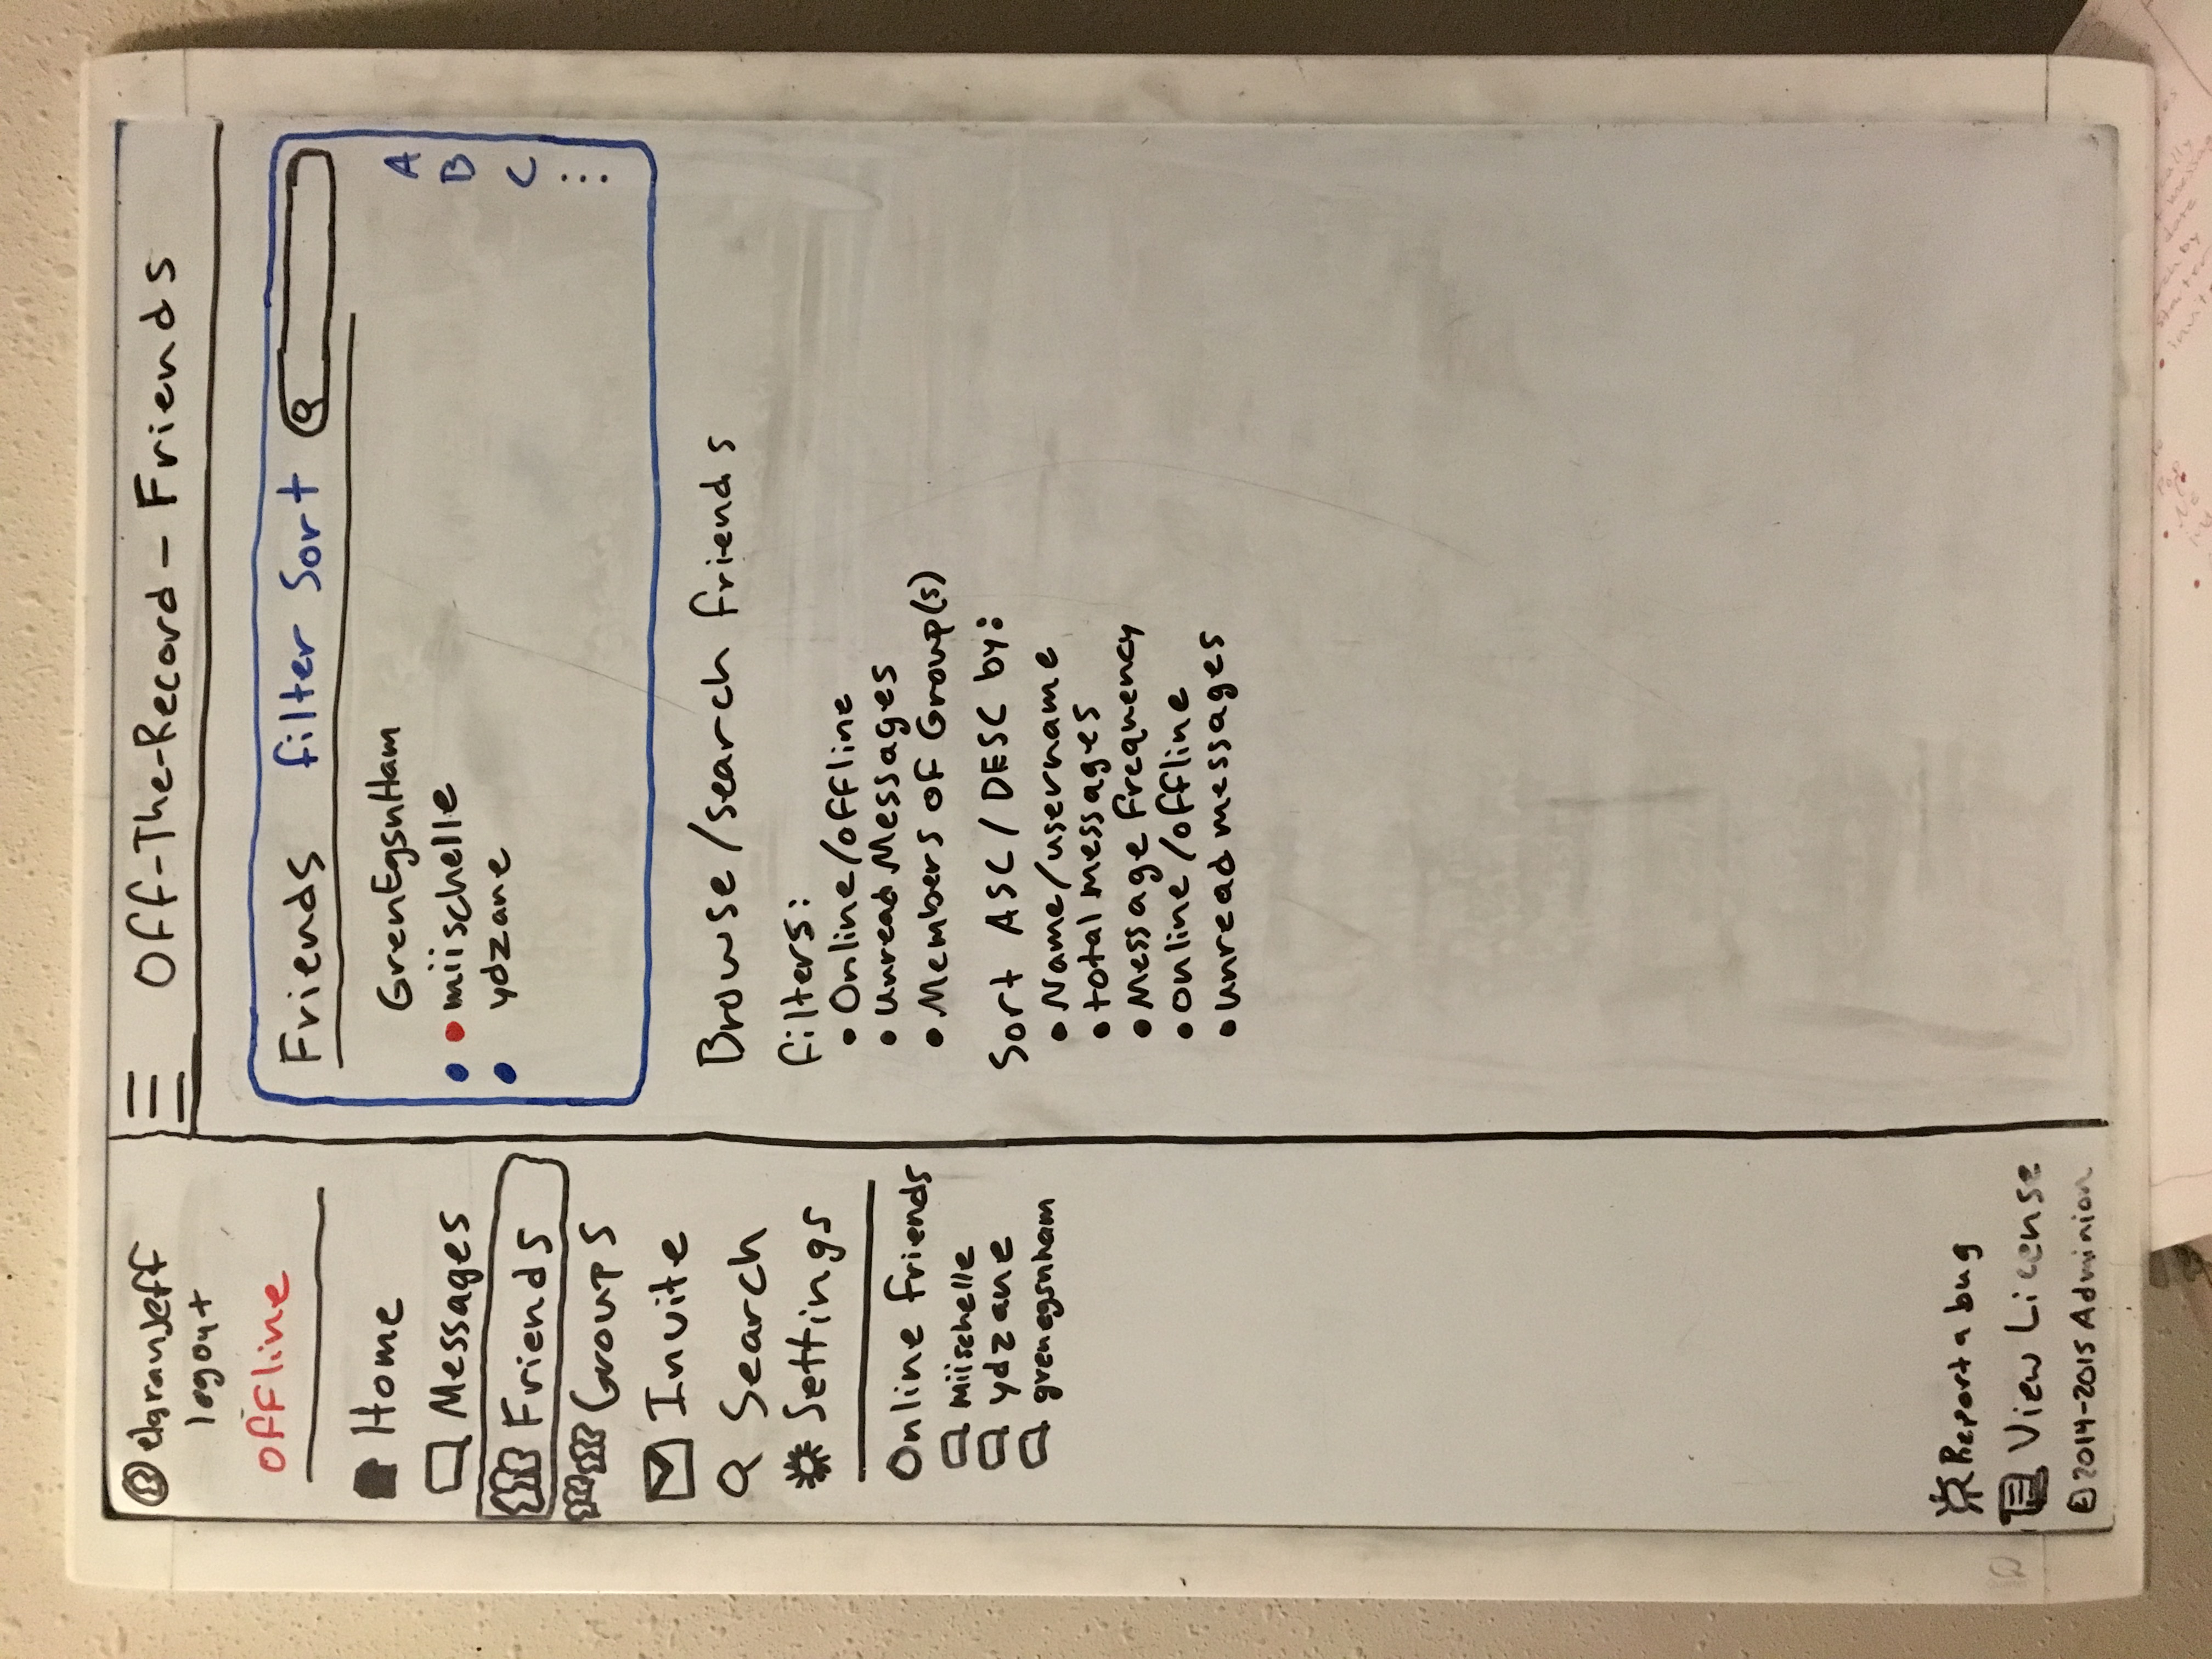 elgranjeff
logout
offline
Home
Messages
Friends
Groups
Invite
Search
Settings
Online friends
miischelle
ydzane
grenegsnham
Report a bug
View License
©2014-2015 Adminion
Off-The-Record - Friends
Friends filter Sort
GrenEgsnHam
miischelle
ydzane
A
B
C
⋮
Browse/search friends
filters:
• Online/offline
• Unread Messages
• Members of Group(s)
Sort ASC/DESC by:
• Name/username
• total messages
• Message frequency
• online/offline
• unread messages